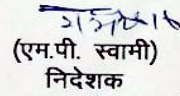 (एम.पी. स्वामी)
निदेशक